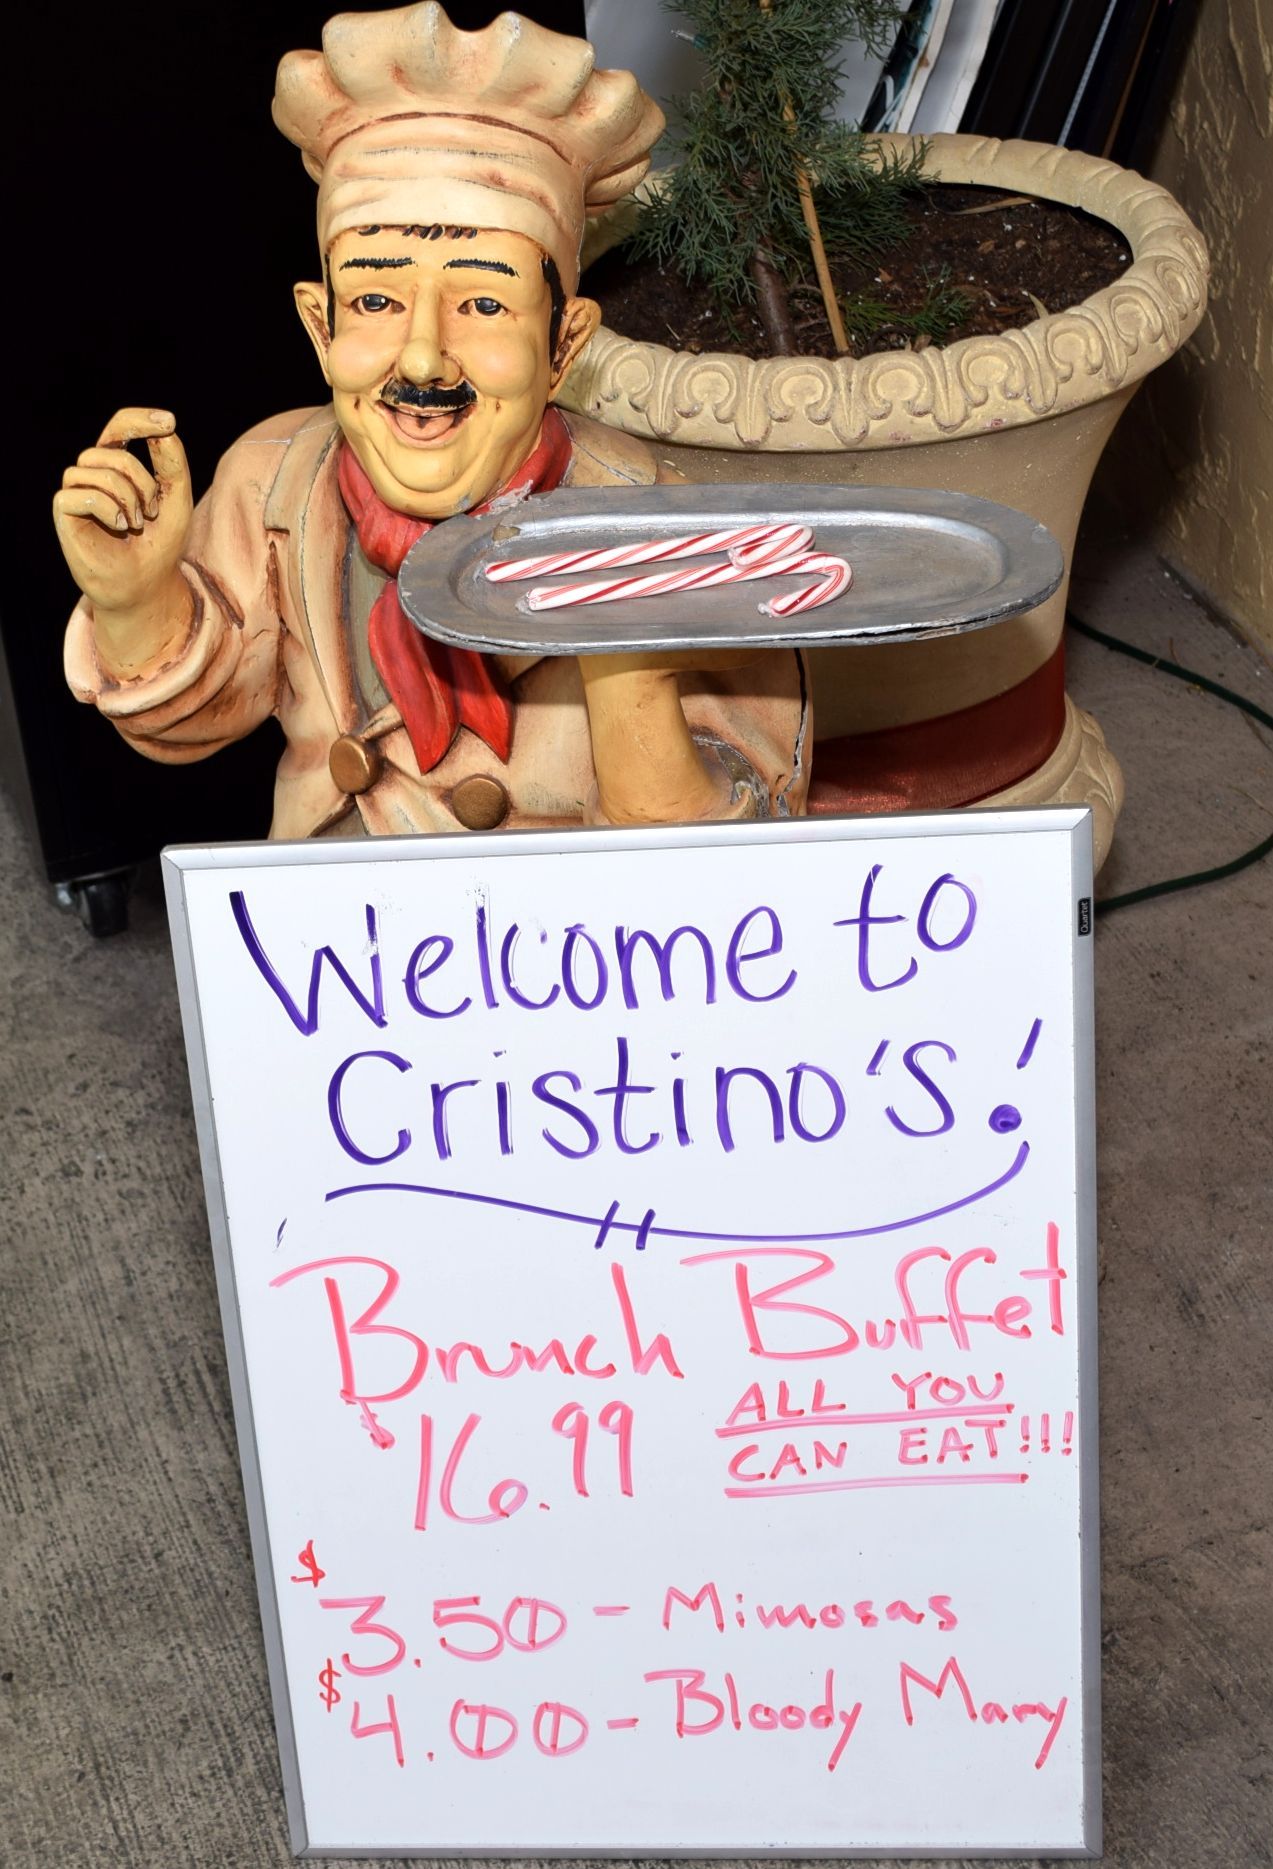 Quartet
Welcome to
Cristino's!
Brunch Buffet
$16.99 ALL YOU
CAN EAT!!!
$3.50 - Mimosas
$4.00 - Bloody Mary